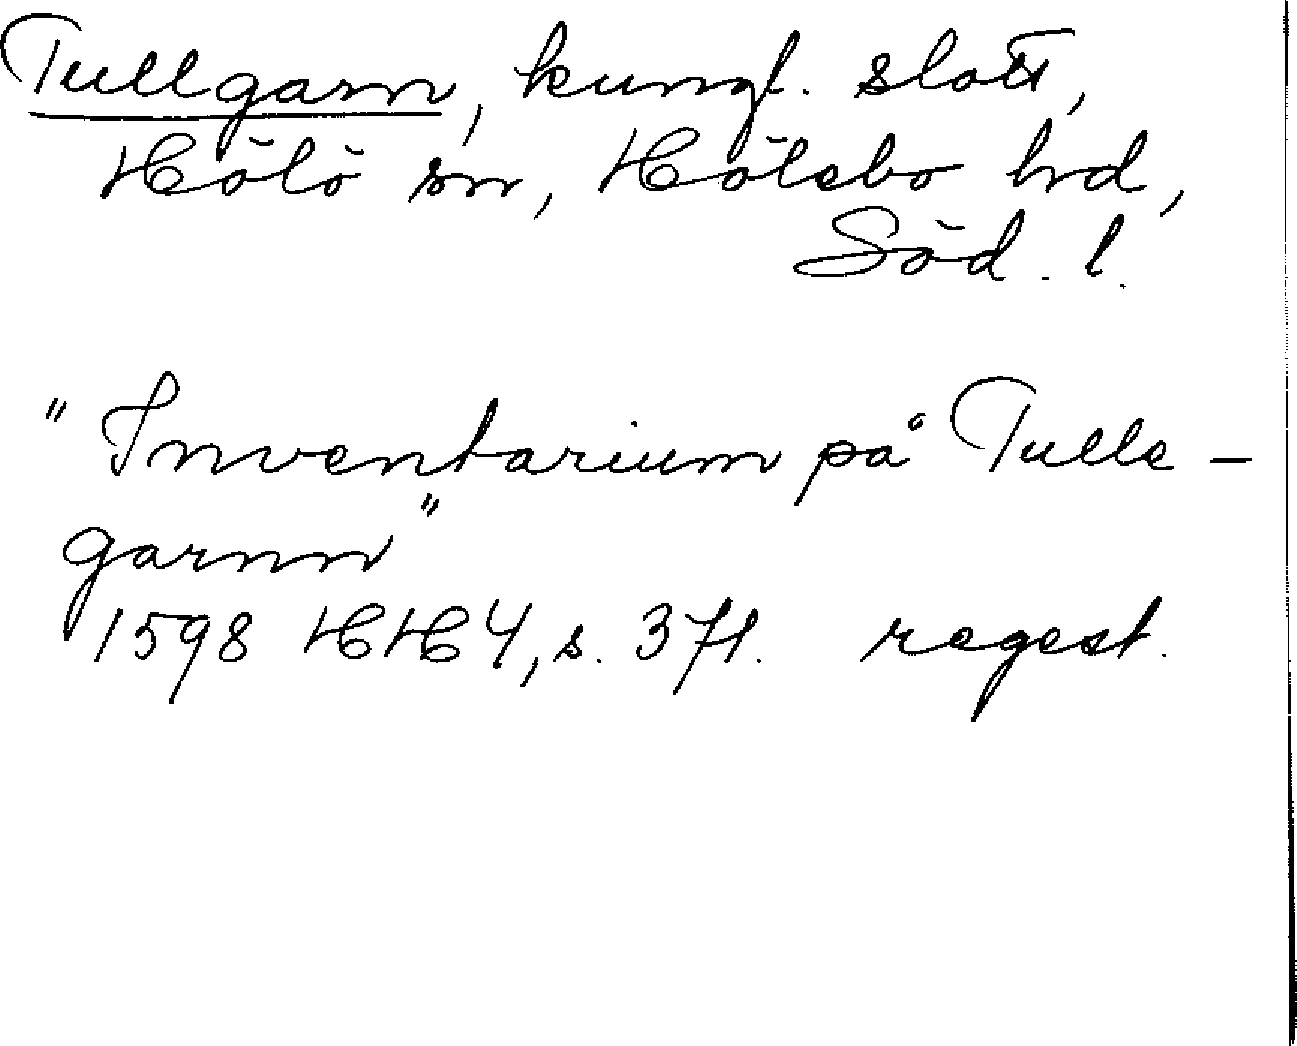 Tullgarn, kungl. slott,
Hölö sn, Hölebo hd,
Söd. l.
"Inventarium på Tulle-
garnn"
1598 HH 4, s. 371. regest.